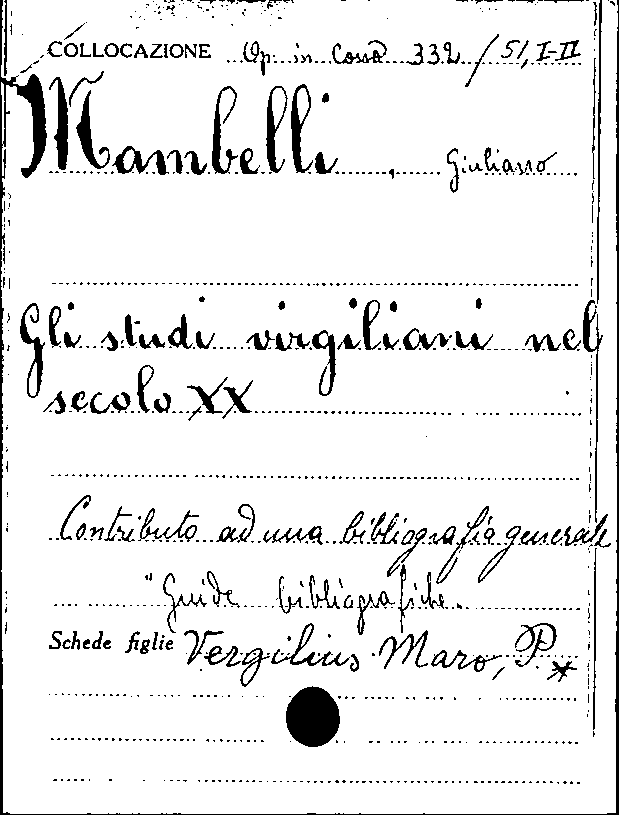 COLLOCAZIONE Op. in corso 332 / 51, I-II
Mambelli, Giuliano
Gli studi virgiliani nel
secolo XX
Contributo ad una bibliografia generale
"Guide bibliografiche.
Schede figlie Vergilius Maro, P. *